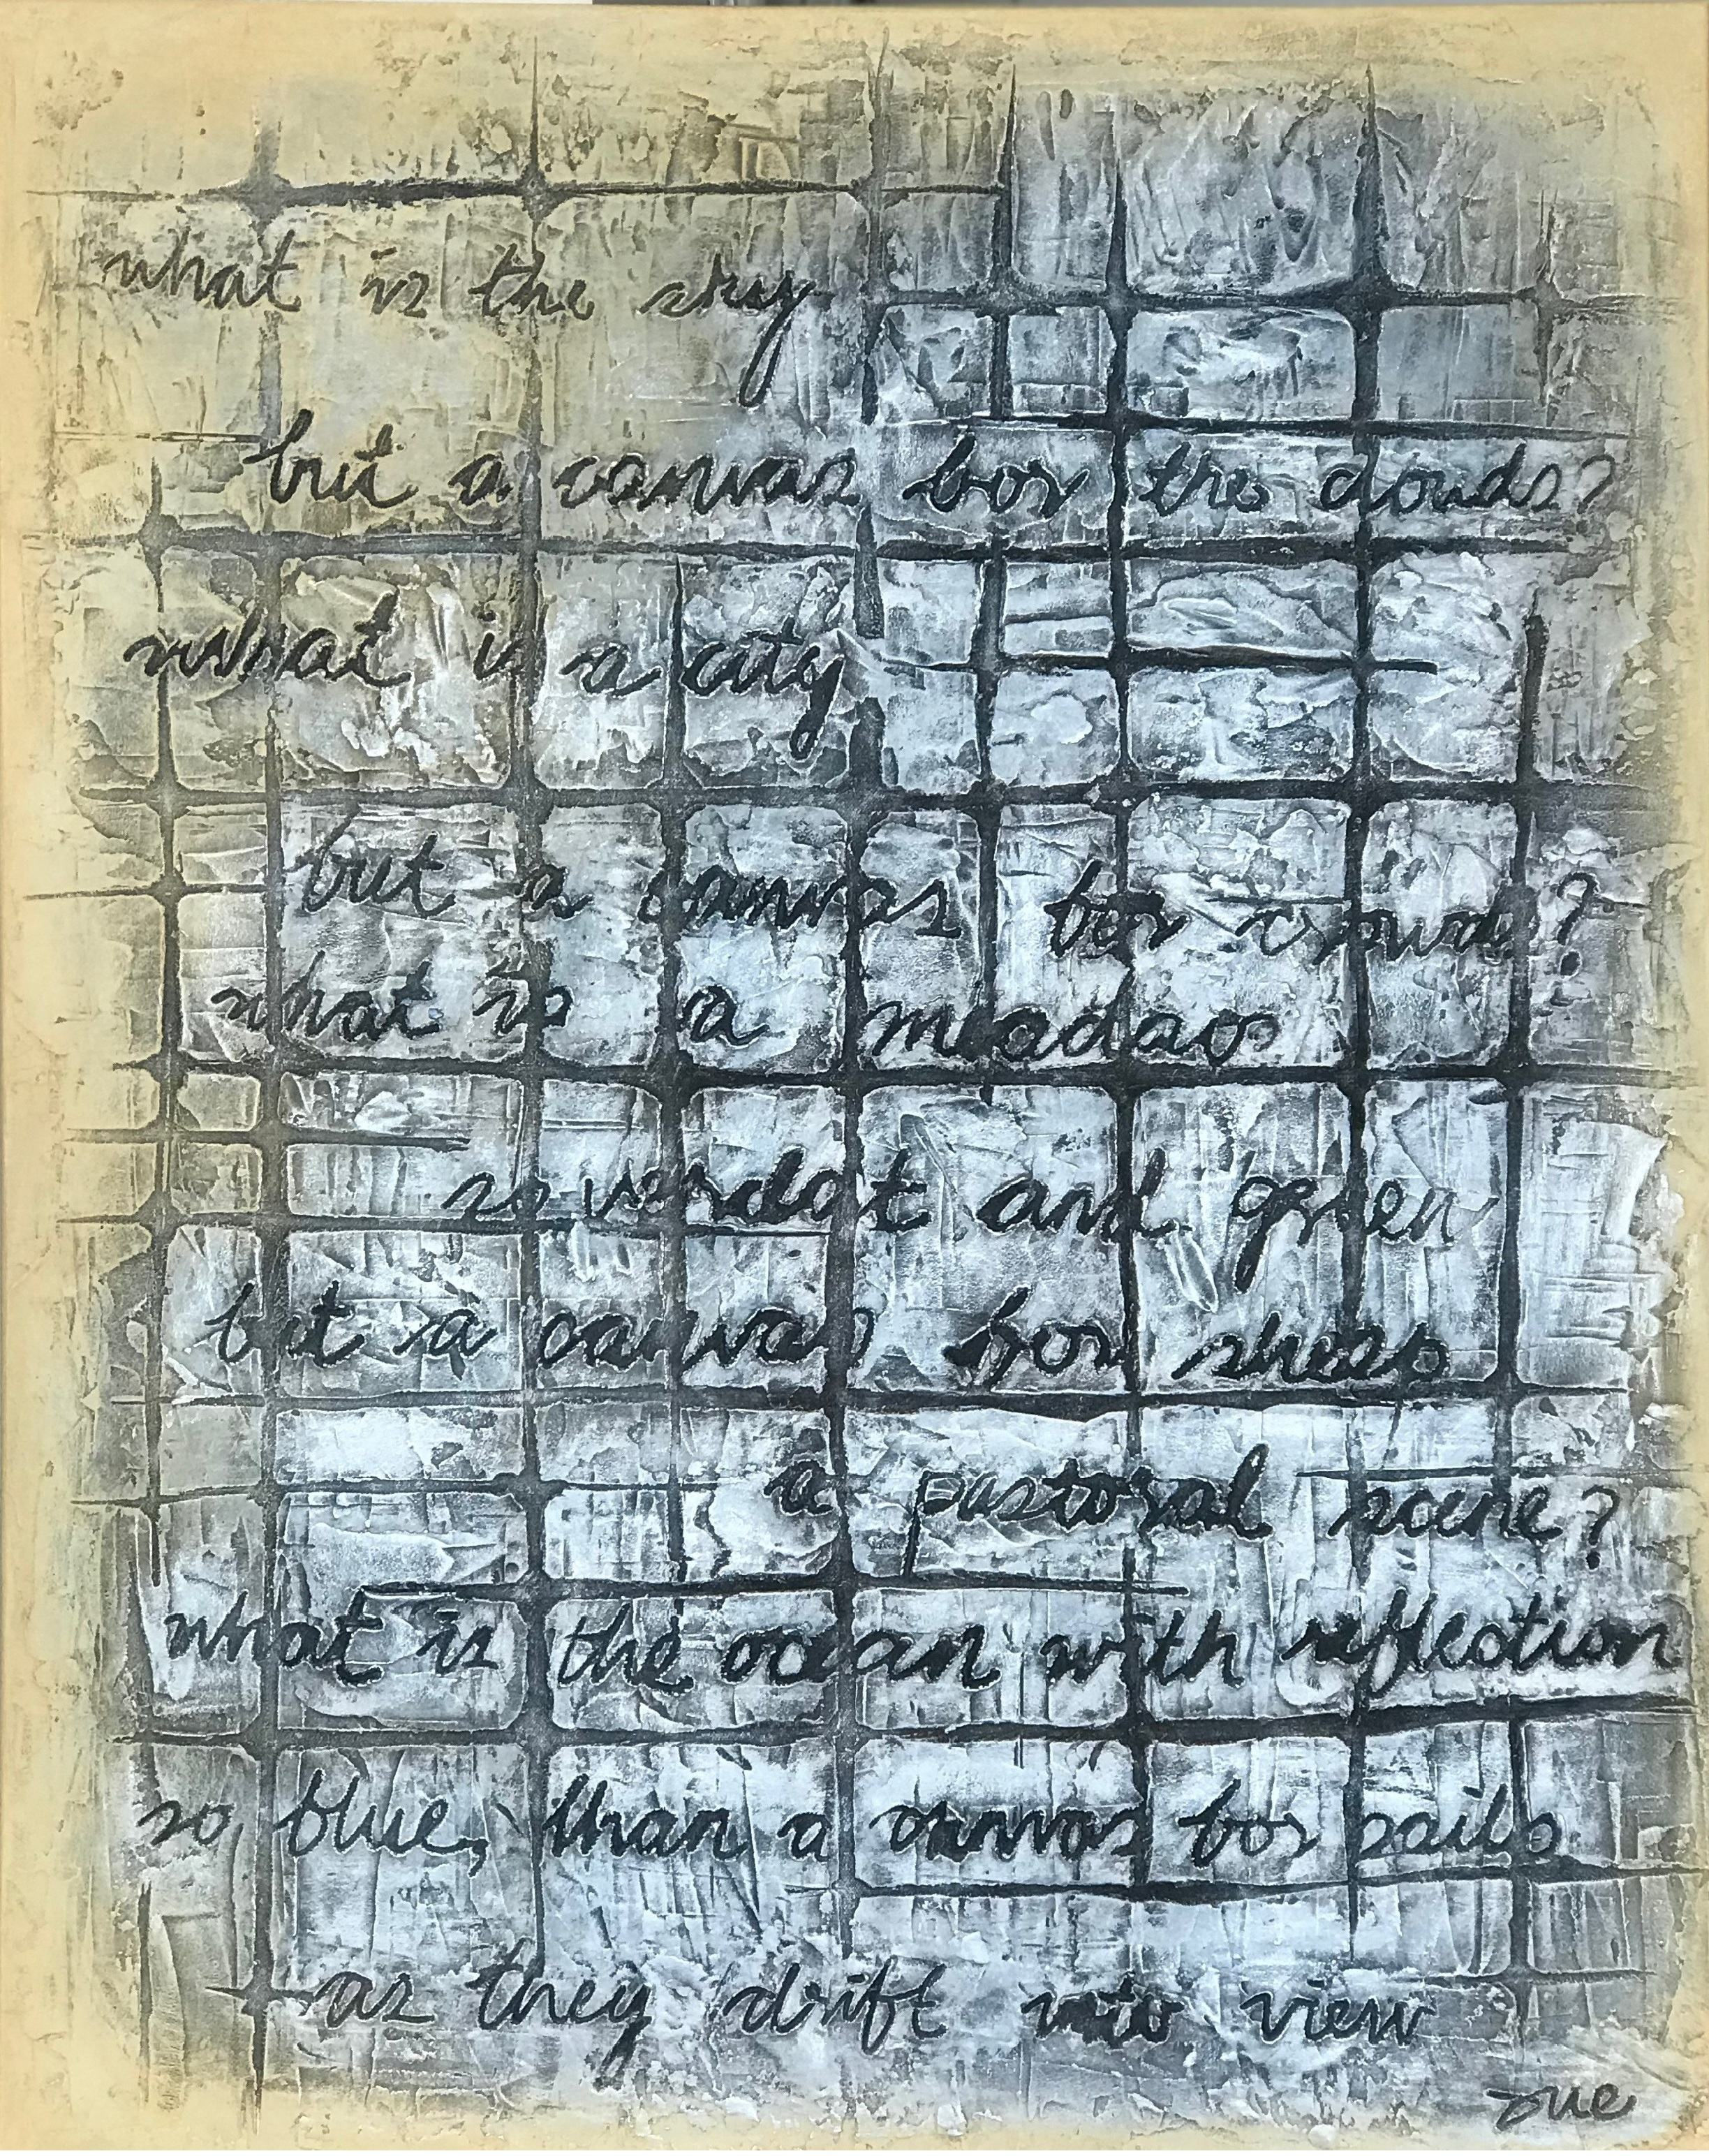 what is the sky
but a canvas for the clouds?
what is a city
but a canvas for crowds?
what is a meadao
so verdat and green
but a canvas for sheep
a pastoral scene?
what is the ocean with reflection
so blue, than a canvas for sails
as they drift into view
sue